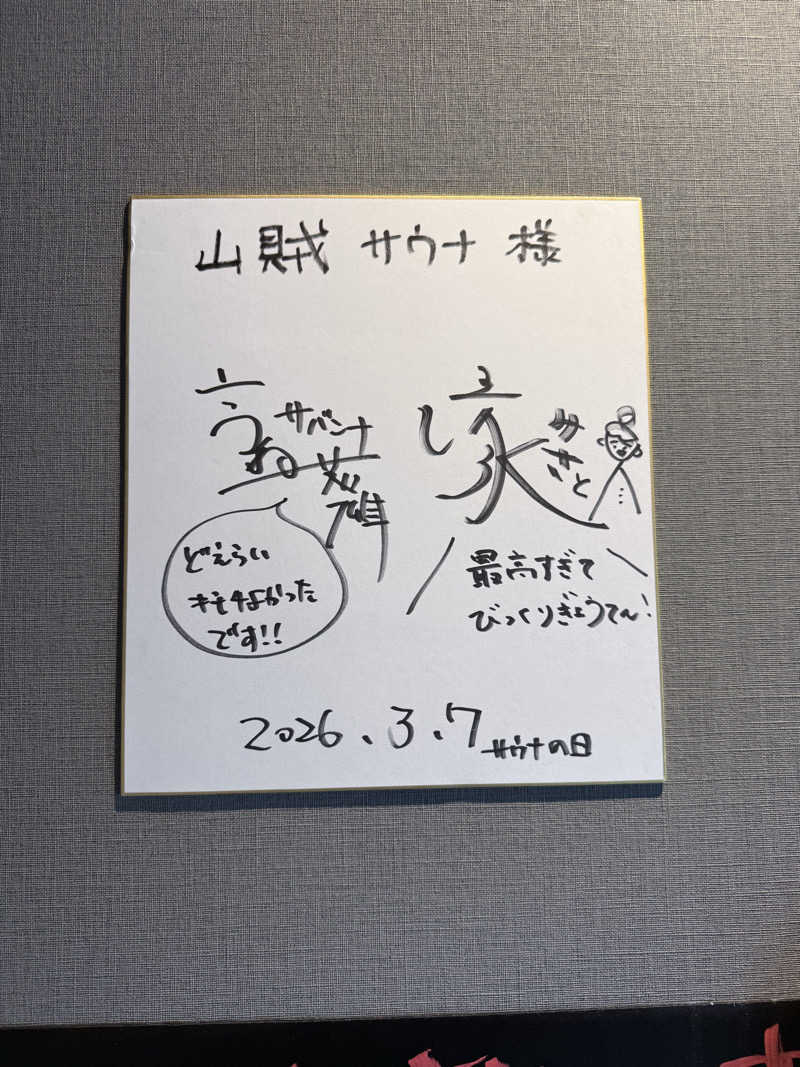 山賊 サウナ 様
サバンナ
どえらい
キモチよかった
です!!
みさと
最高すぎて
びっくりぎょうてん!
2026.3.7 サウナの日